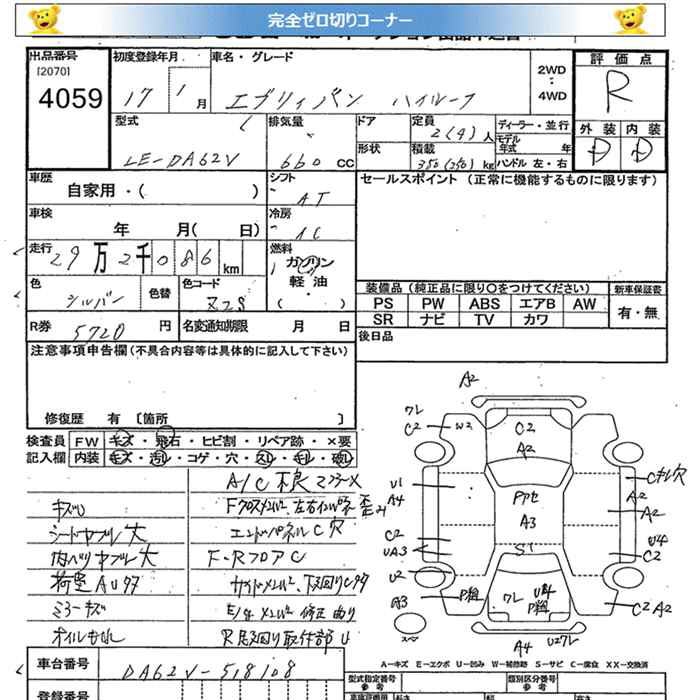 完全ゼロ切りコーナー
出品番号 初度登録年月 車名・グレード 2WD : 4WD 評価点
[2070]
4059 17 1月 エブリィバン ハイルーフ R
型式 排気量 ドア 定員 2(4)人 ディーラー・並行 外装 内装
LE-DA62V 660 CC 形状 積載 350(250)kg モデル年式 年 ハンドル 左・右 D D
車歴 シフト セールスポイント (正常に機能するものに限ります)
自家用・( ) AT
車検 冷房
年 月( 日) AC
走行 燃料
29万2千086km ガソリン
軽油
( )
色 色替 色コード 装備品 (純正品に限り○をつけてください) 新車保証書
シルバー Z2S PS PW ABS エアB AW 有・無
R券 5720円 名変通知期限 月 日 SR ナビ TV カワ
後日品
注意事項申告欄(不具合内容等は具体的に記入して下さい)
修復歴 有 [箇所 ]
検査員 FW キズ・飛石・ヒビ割・リペア跡・×要
記入欄 内装 キズ・汚レ・コゲ・穴・スレ・キレ・破レ
A/C 不良
キズ
シートヤブレ大 エンドパネルC穴
内ヘリヤブレ大 F・RフロアC
荷室AUヌケ
ミラーキズ
オイルもれ
A2
ワレ
C2 W2 C2
A2
U1 Pアセ Cキレ穴
A4 A3 A2
A2
C2 S1 U4
UA3 C2
U2
A3 P組 ワレ U4 P組 C2 A2
スペ
A4 U2ワレ
A-キズ E-エクボ U-凹み W-補修跡 S-サビ C-腐食 XX-交換済
車台番号 DA62V-518108 型式指定番号 参考 類別区分番号 参考
登録番号